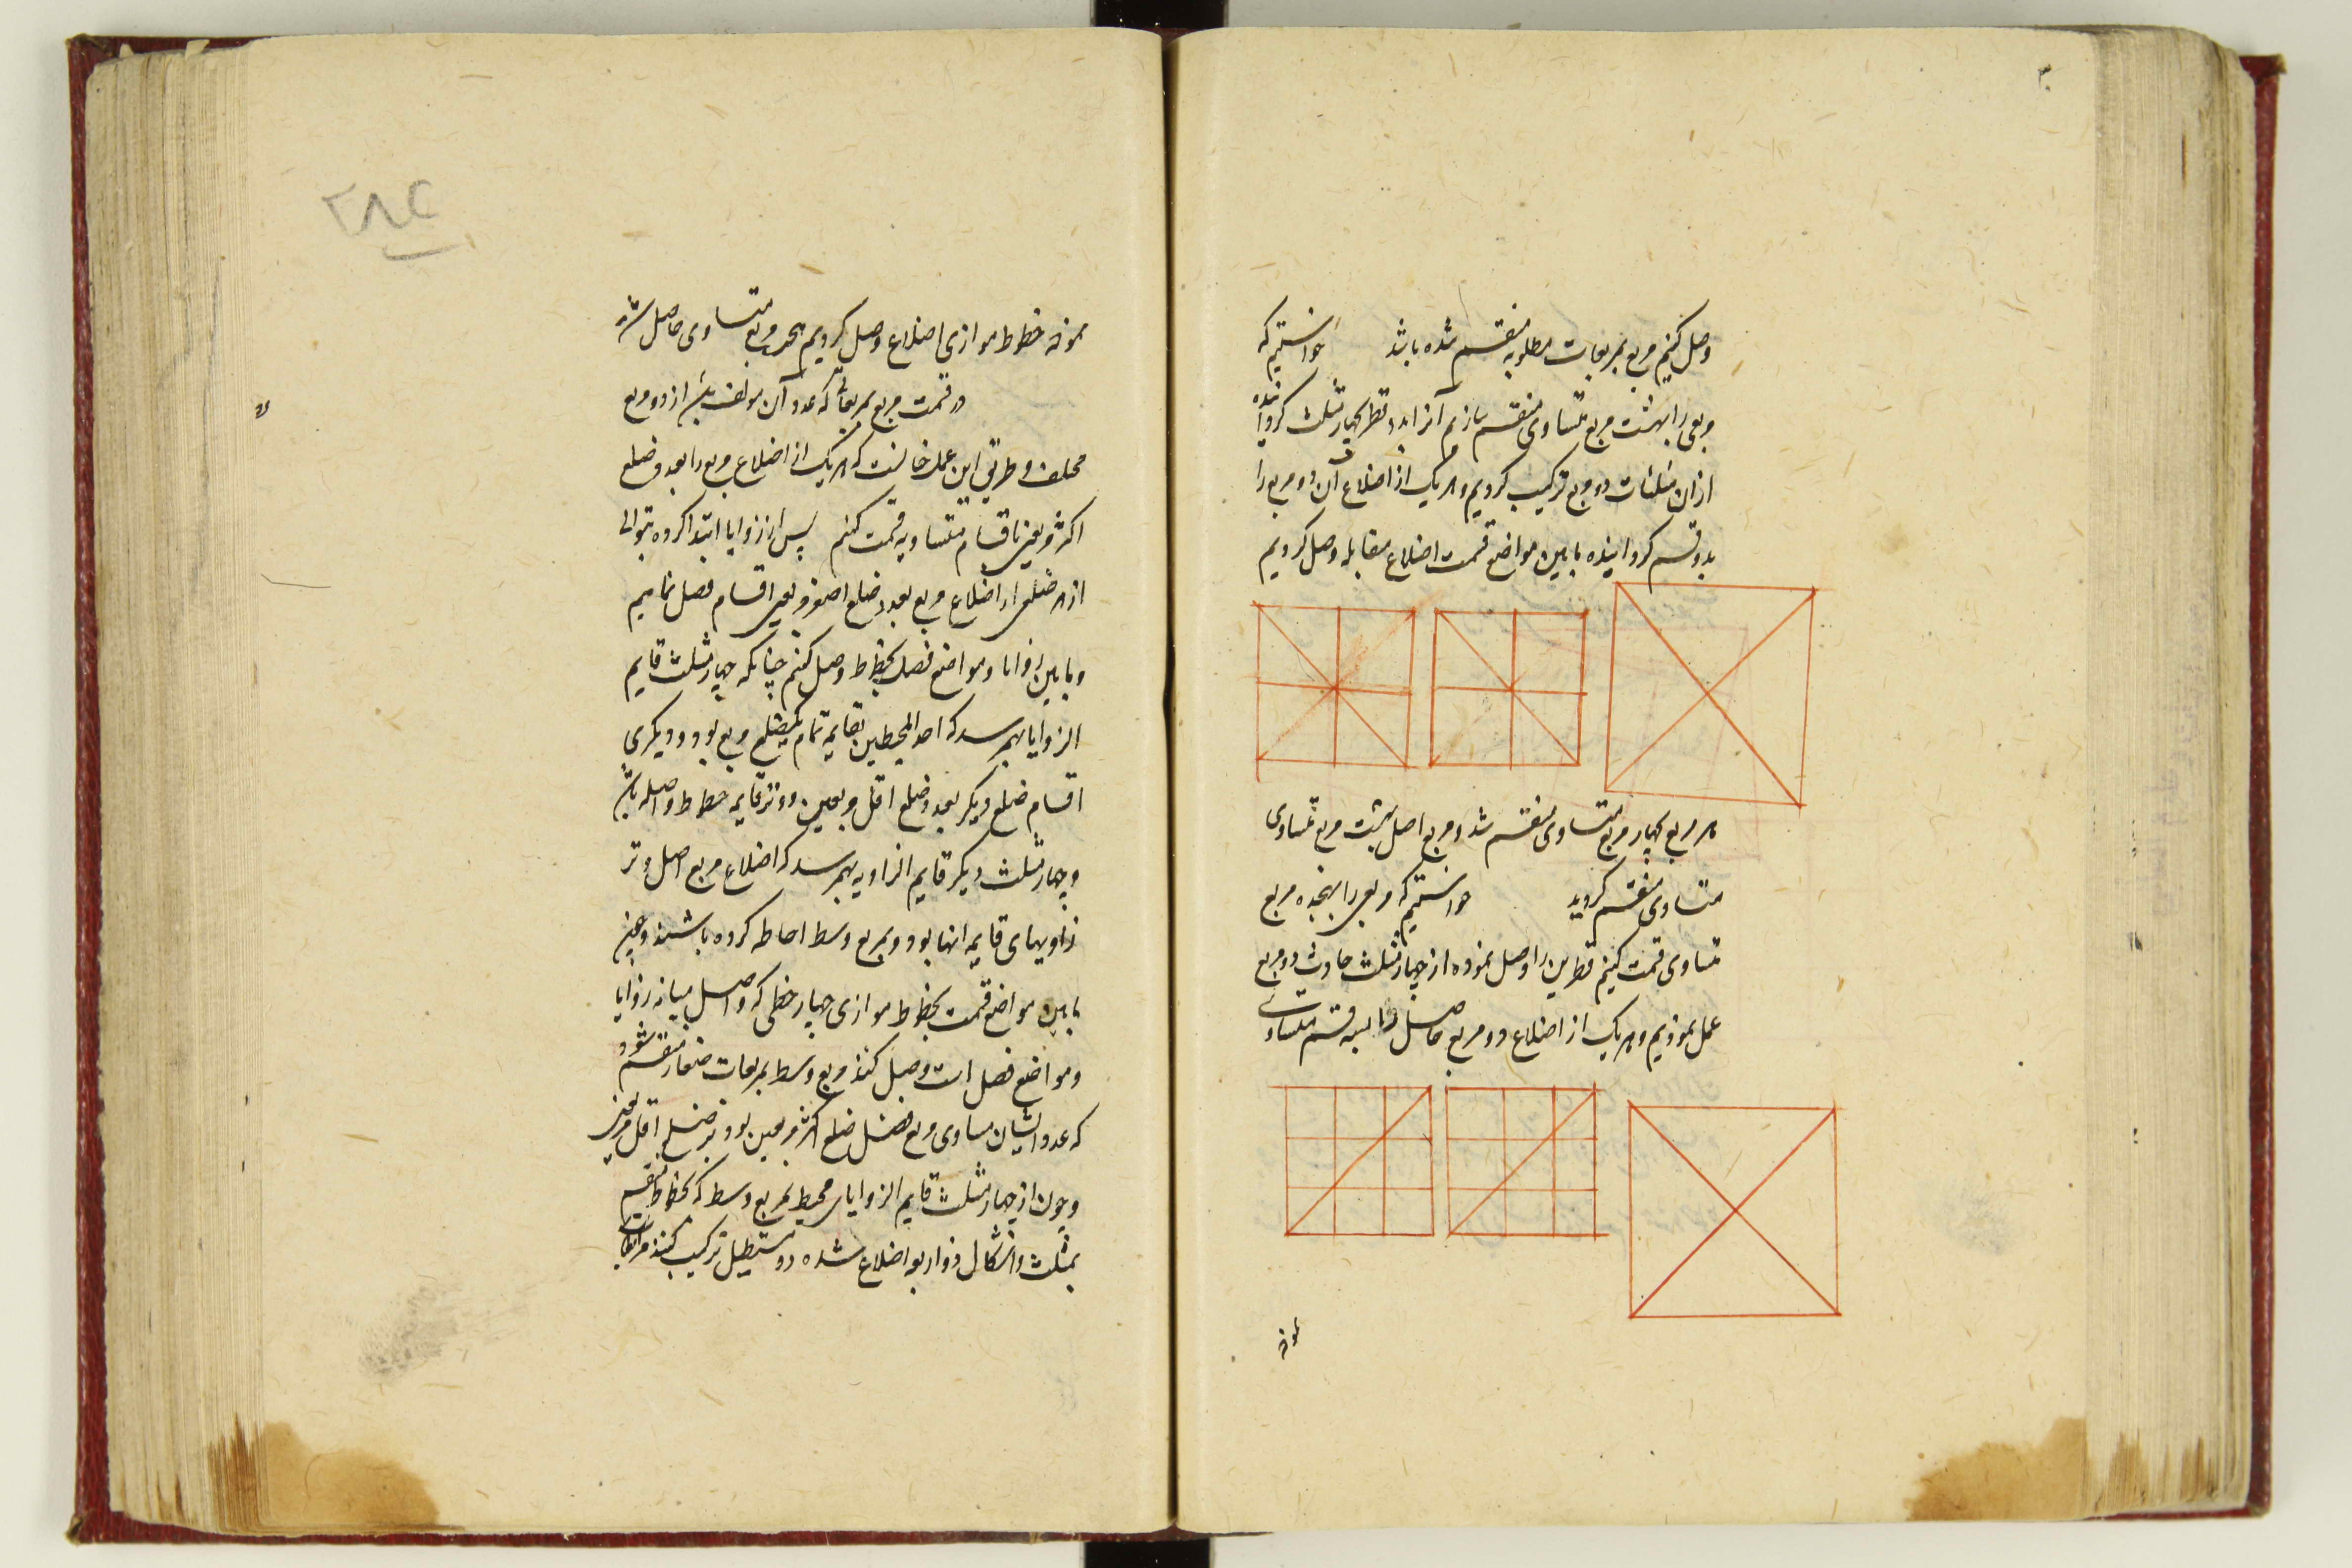 ۳
وصل کنیم مربع بمربعات مطلوبه منقسم شده باشد خواستیم که
مربعی را بهشت مربع متساوی منقسم سازیم آنرا بدو قطر بچهار مثلث کردانیده
ازان مثلثات دو مربع ترکیب کردیم و هر یک از اضلاع آن دو مربع را
بدو قسم کردانیده مابین مواضع قسمت اضلاع مقابله وصل کردیم
هر مربع بچهار مربع متساوی منقسم شد و مربع اصل بهشت مربع متساوی
متساوی منقسم کردید خواستیم که مربعی را بهجده مربع
متساوی قسمت کنیم قطرین را وصل نموده از چهار مثلث حادث دو مربع
عمل نمودیم و هر یک از اضلاع دو مربع حاصل را بسه قسم متساوی
نموده
۲۸۴
نموده خطوط موازی اضلاع وصل کردیم هجده مربع متساوی حاصل شد
در قسمت مربع بمربعاتی که عدد آن مولف باشد از دو مربع
مختلف و طریق این عمل چنانست که هر یک از اضلاع مربع را بعدد ضلع
اکثر مربعین باقسام متساویه قسمت کنیم پس از زوایا ابتدا کرده بتوالی
از هر ضلعی از اضلاع مربع بعدد ضلع اصغر مربعین اقسام فصل نماییم
و مابین زوایا و مواضع فصل بخطوط وصل کنیم چنانکه چهار مثلث قایم
الزوایا بهم رسد که احد المحیطین بقایمه تمام یکضلع مربع بود و دیگری
اقسام ضلع دیگر بعدد ضلع اقل مربعین و وتر قایمه خطوط واصله باشد
و چهار مثلث دیگر قایم الزاویه بهم رسد که اضلاع مربع اصل وتر
زاویهای قایمه انها بود و بمربع وسط احاطه کرده باشند و چون
مابین مواضع قسمت بخطوط موازی چهار خطی که واصل میانه زوایا
و مواضع فصل است وصل کنند مربع وسط بمربعات صغار منقسم شود
که عدد ایشان مساوی مربع فضل ضلع اکثر مربعین بود بر ضلع اقل مربعین
و چون از چهار مثلث قایم الزوایای محیط بمربع وسط که بخطوط منقسم
بمثلث و اشکال ذو اربعه اضلاع شده دو مستطیل ترکیب کنند مربعات